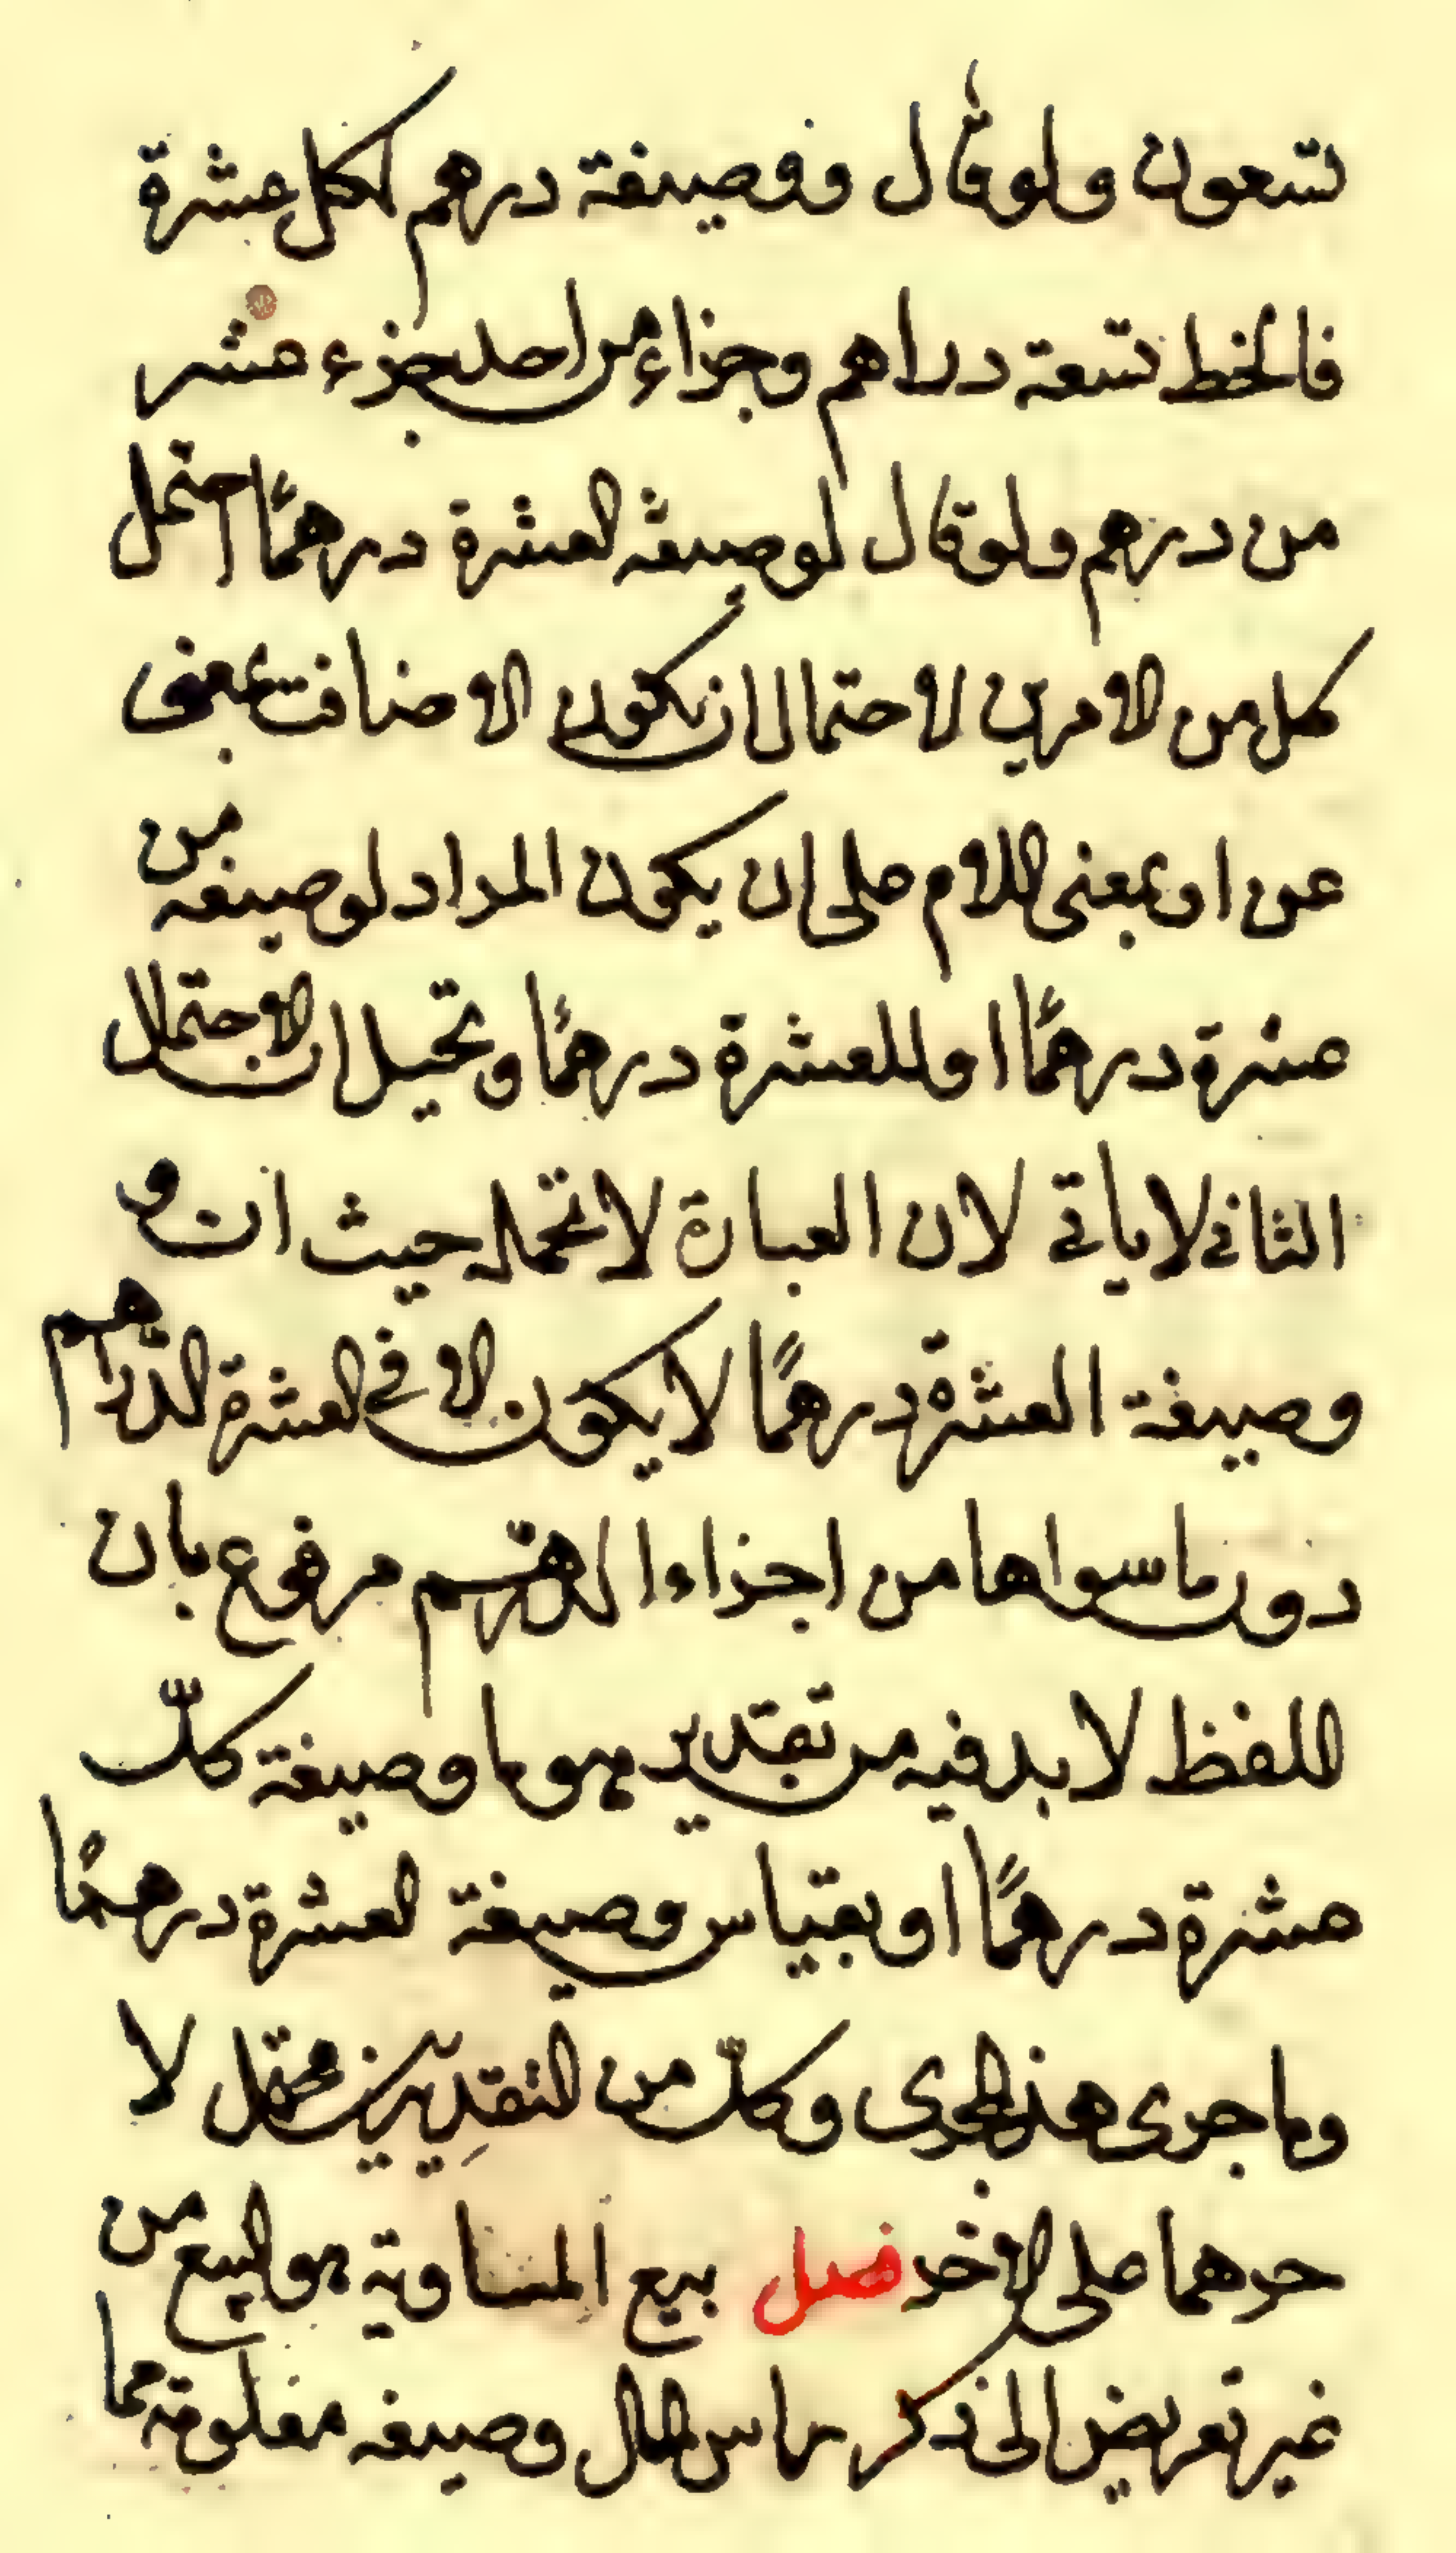 تسعون ولو قال ووصيفة درهم لكل عشرة
فالخط تسعة دراهم وجزاء من احد جزء عشر
من درهم ولو قال لوصيغه العشرة درهمًا احتمل
كل من الامرين لاحتمال ان تكون الاضافت بمعنى
عن او بمعنى اللام على ان يكون المراد لوصيغه من
عشرة درهمًا او للعشرة درهمًا وتحيل ان الاحتمال
الثانى لا ياتى لان العبارة لا تحمله حيث ان و
وصيغة العشرة درهمًا لا يكون الا فى العشرة الدراهم
دون ما سواها من اجزاء الدرهم مرفوع بان
اللفظ لا بد فيه من تقدير هو ما وصيغة كلّ
عشرة درهمًا او بقياس وصيغة العشرة درهمًا
وما جرى هذا المجرى وكلّ من التقديرين محتمل لا
حدهما على الاخر فصل بيع المساوية هو البيع من
غير تعريض الى ذكر راس المال وصيغه معلومة مما